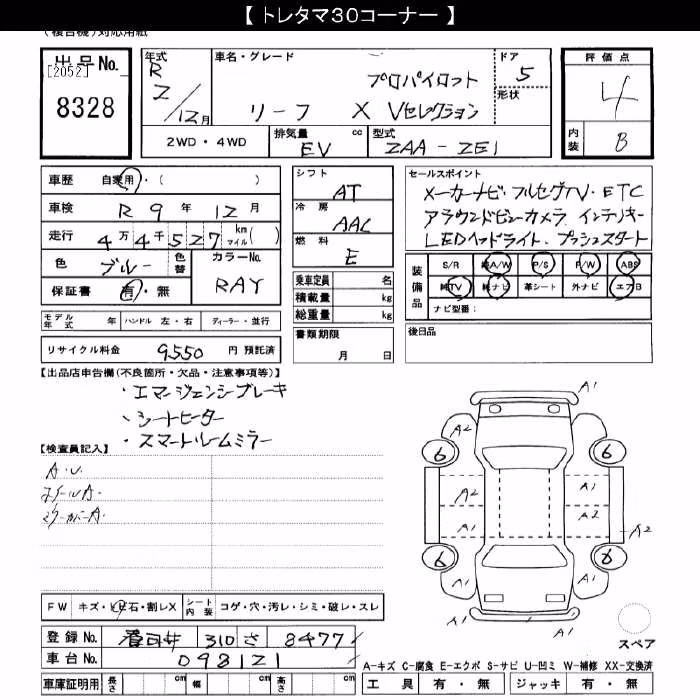 【 トレタマ30コーナー 】
(複合機)対応用紙
出品No. [2052] 8328
年式 R 2/12月
車名・グレード リーフ X プロパイロット Vセレクション
ドア 5 形状
評価点 4
内装 B
2WD・4WD
排気量 cc EV
型式 ZAA-ZE1
車歴 自家用・( )
車検 R 9年 12月
走行 4万4千527 km マイル( )
色 ブルー 色替 カラーNo. RAY
保証書 有・無
シフト AT
冷房 AAC
燃料 E
乗車定員 名
積載量 kg
総重量 kg
書類期限 月 日
セールスポイント
メーカーナビ・フルセグTV・ETC
アラウンドビューカメラ、インテリキー
LEDヘッドライト、プッシュスタート
装備品 S/R 純A/W P/S P/W ABS
純TV 純ナビ 革シート 外ナビ エアB
ナビ型番:
モデル年式 年 ハンドル 左・右 ディーラー・並行
後日品
リサイクル料金 9550 円 預託済
【出品店申告欄(不良箇所・欠品・注意事項等)】
・エマージェンシブレーキ
・シートヒーター
・スマートルームミラー
【検査員記入】
A.U.
ホイールA.
ミラーカバーA.
A1
A2 6 6 A1
A2 A1
A1 A1 A2
6 6
A1 A1
A1
スペア
FW キズ・ヒビ・石・割レX シート内装 コゲ・穴・汚レ・シミ・破レ・スレ
登録No. 310 さ 8477
車台No. 098121
A-キズ C-腐食 E-エクボ S-サビ U-凹ミ W-補修 XX-交換済
車庫証明用 長さ cm 幅 cm 高さ cm
工具 有・無 ジャッキ 有・無